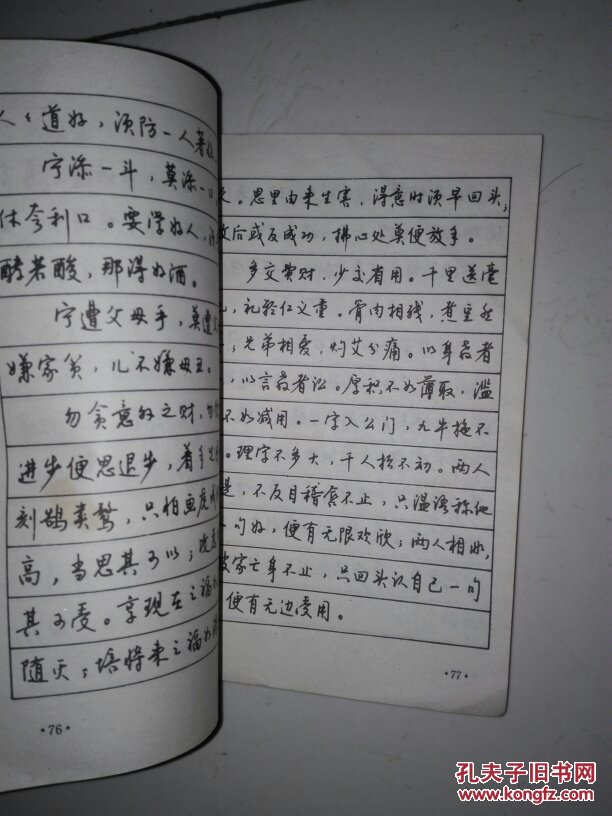 人人道好，须防一人著
宁添一斗，莫添一口
休夸利口。要学好人，
酵若酸，那得好酒。
宁遭父母手，莫遭
嫌家贫，儿不嫌母丑。
勿贪意外之财，
进步便思退步，着手先
刻鹄类鹜，只怕画虎成
高，当思其可以；攻
其可受。享现在之福如
随灭；培将来之福如添
·76·
。恩里由来生害，得意时须早回头；
败后或反成功，拂心处莫便放手。
多交费财，少交省用。千里送毫
毛，礼轻仁义重。骨肉相残，煮豆燃
；兄弟相爱，灼艾分痛。以身教者
，以言教者讼。厚积不如薄取，滥
不如减用。一字入公门，九牛拖不
。理字不多大，千人抬不动。两人
是，不反目稽唇不止，只温语称他
一句好，便有无限欢欣；两人相
破家亡身不止，只回头认自己一句
便有无边受用。
·77·
孔夫子旧书网
www.kongfz.com